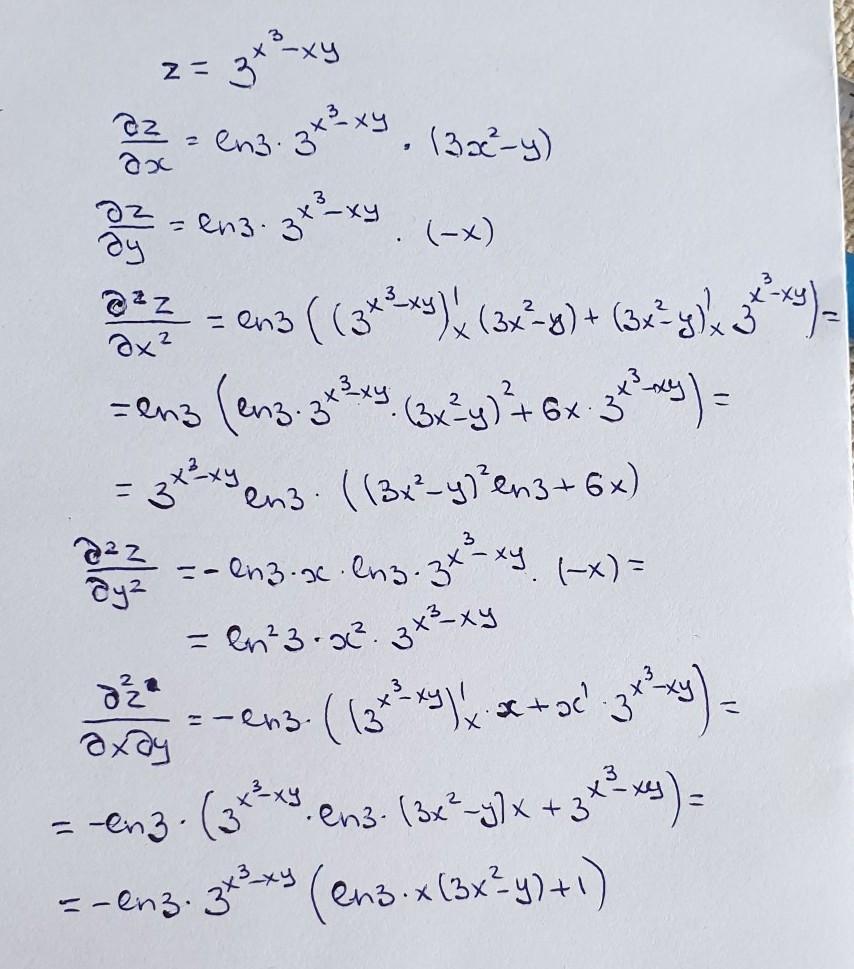 z = 3^{x³-xy}
∂z/∂x = ln3 · 3^{x³-xy} · (3x²-y)
∂z/∂y = ln3 · 3^{x³-xy} · (-x)
∂²z/∂x² = ln3 ((3^{x³-xy})'ₓ (3x²-y) + (3x²-y)'ₓ 3^{x³-xy}) =
= ln3 (ln3 · 3^{x³-xy} · (3x²-y)² + 6x · 3^{x³-xy}) =
= 3^{x³-xy} ln3 · ((3x²-y)² ln3 + 6x)
∂²z/∂y² = - ln3 · x · ln3 · 3^{x³-xy} · (-x) =
= ln²3 · x² · 3^{x³-xy}
∂²z/∂x∂y = - ln3 · ((3^{x³-xy})'ₓ · x + x' · 3^{x³-xy}) =
= -ln3 · (3^{x³-xy} · ln3 · (3x²-y)x + 3^{x³-xy}) =
= -ln3 · 3^{x³-xy} (ln3 · x(3x²-y)+1)